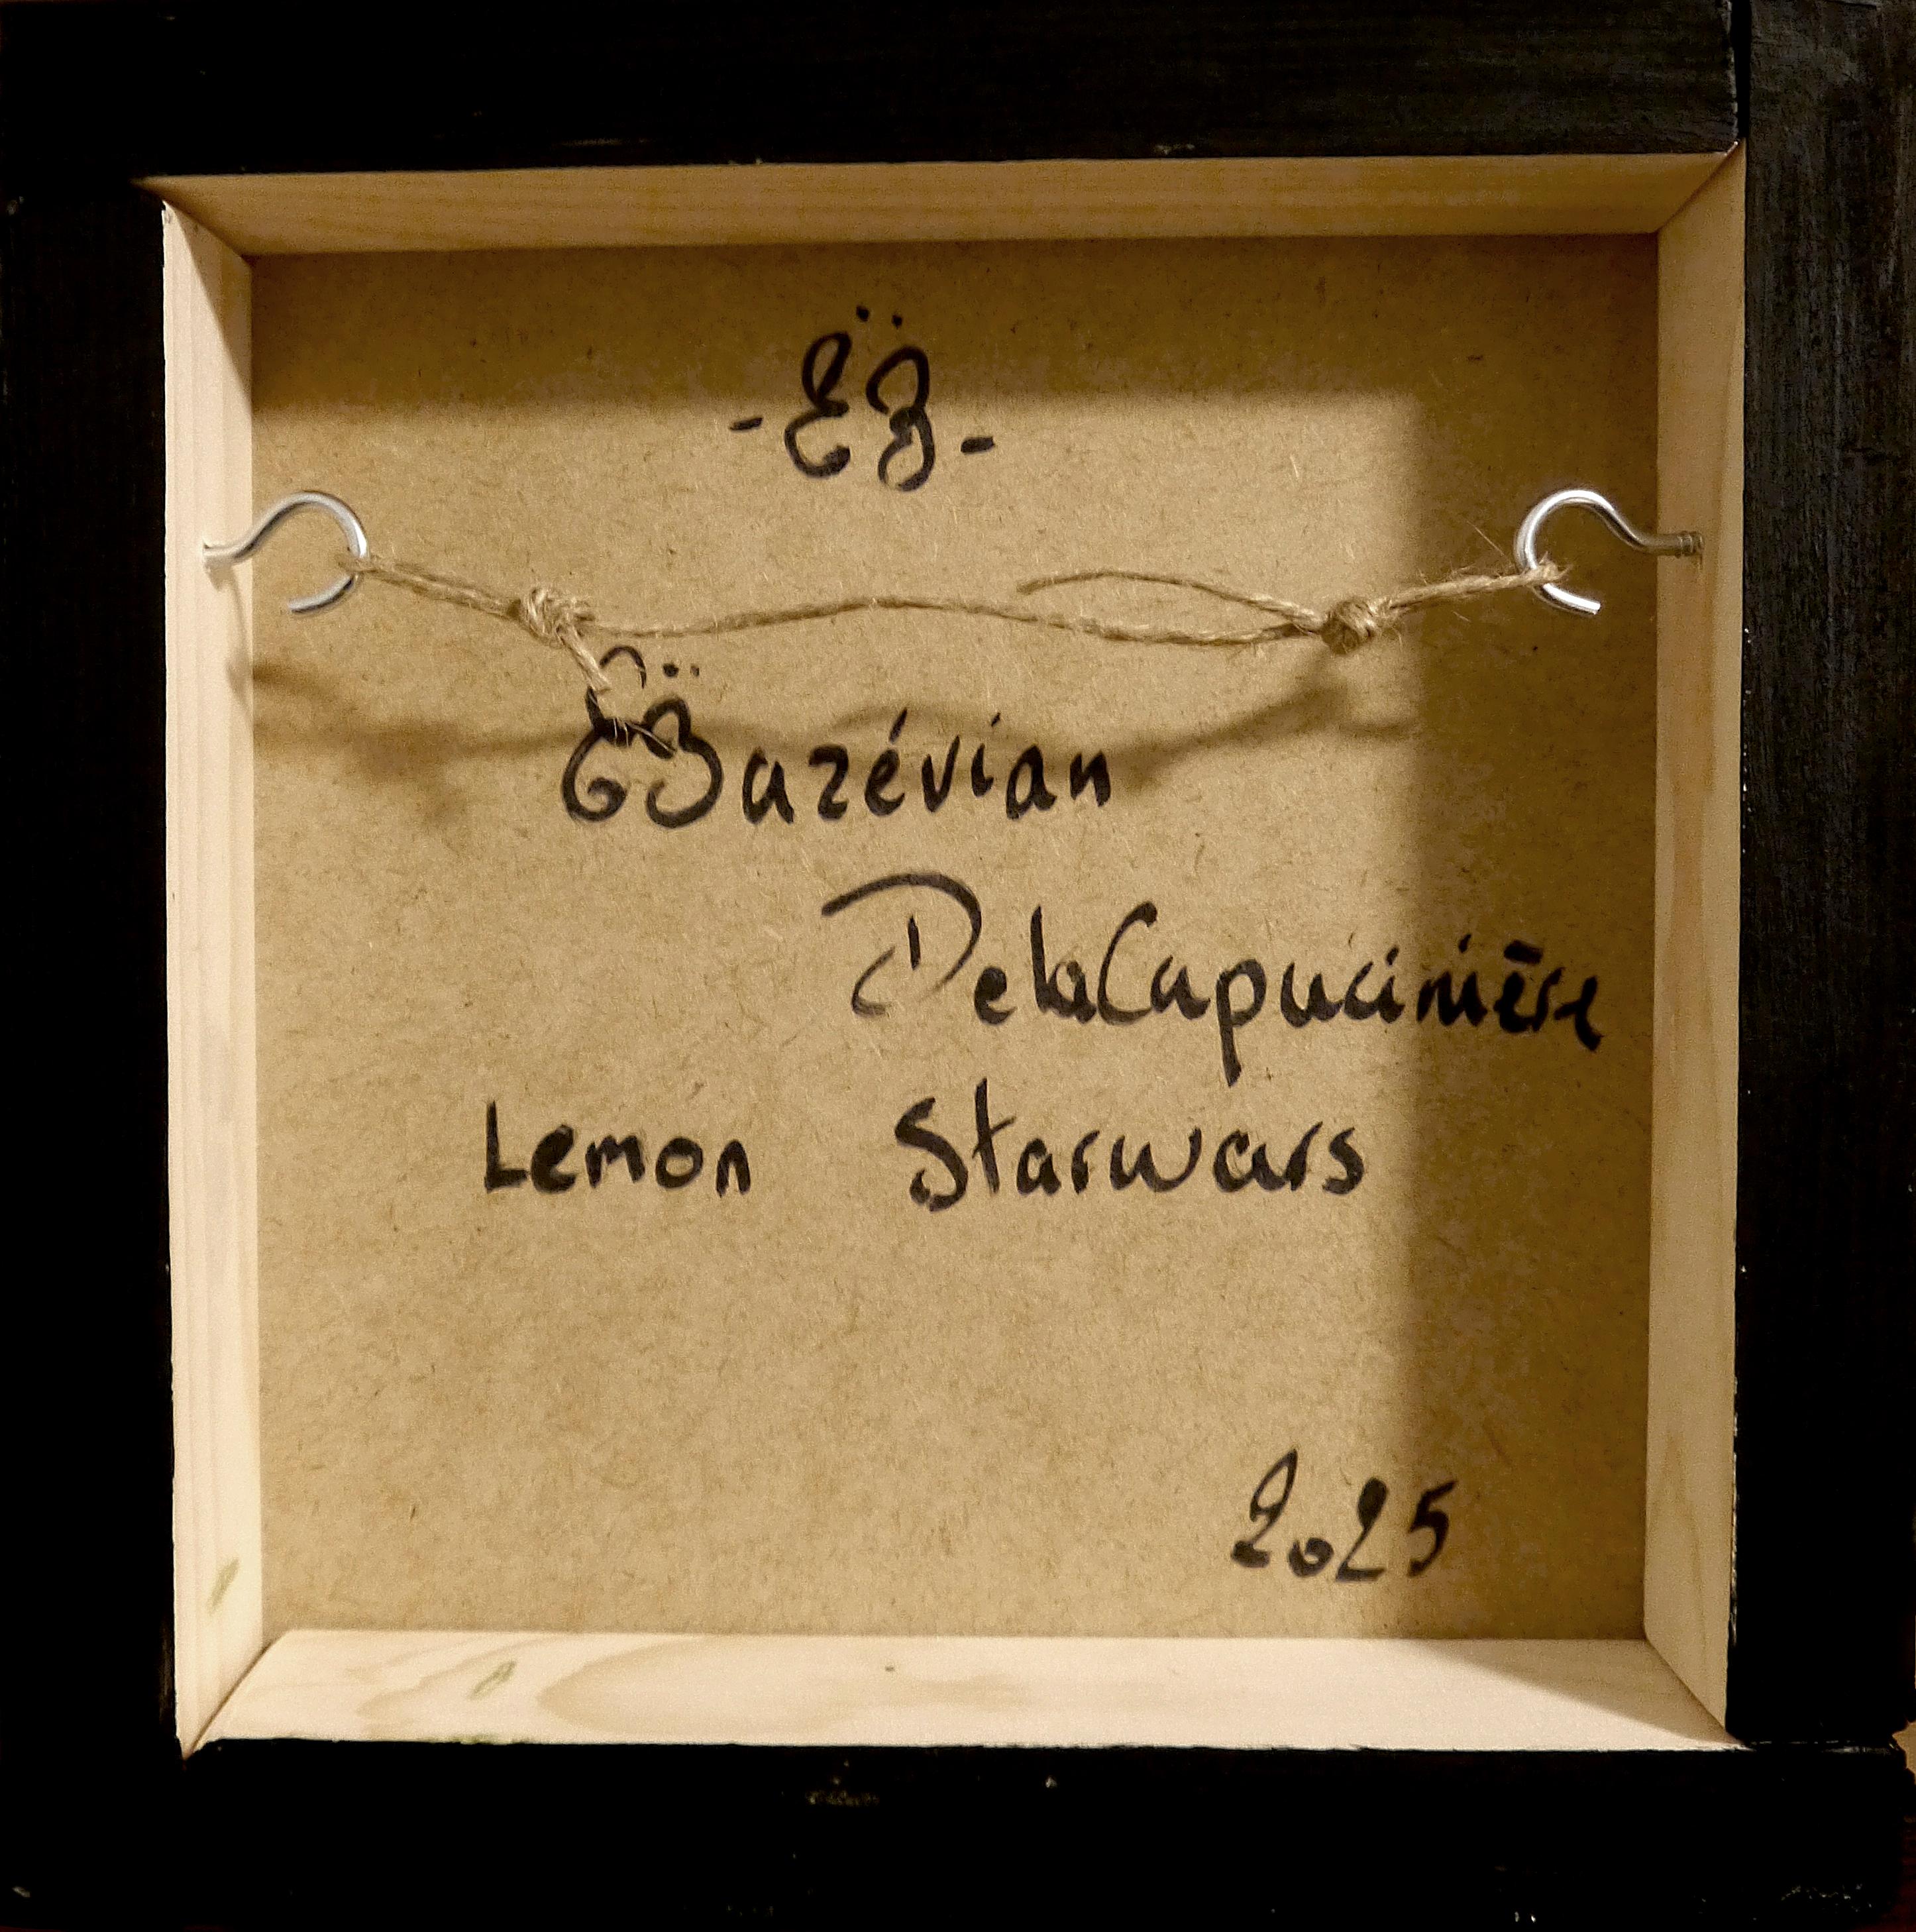 -ËB-
ËBazévian
DelaCapucinière
Lemon Starwars
2025